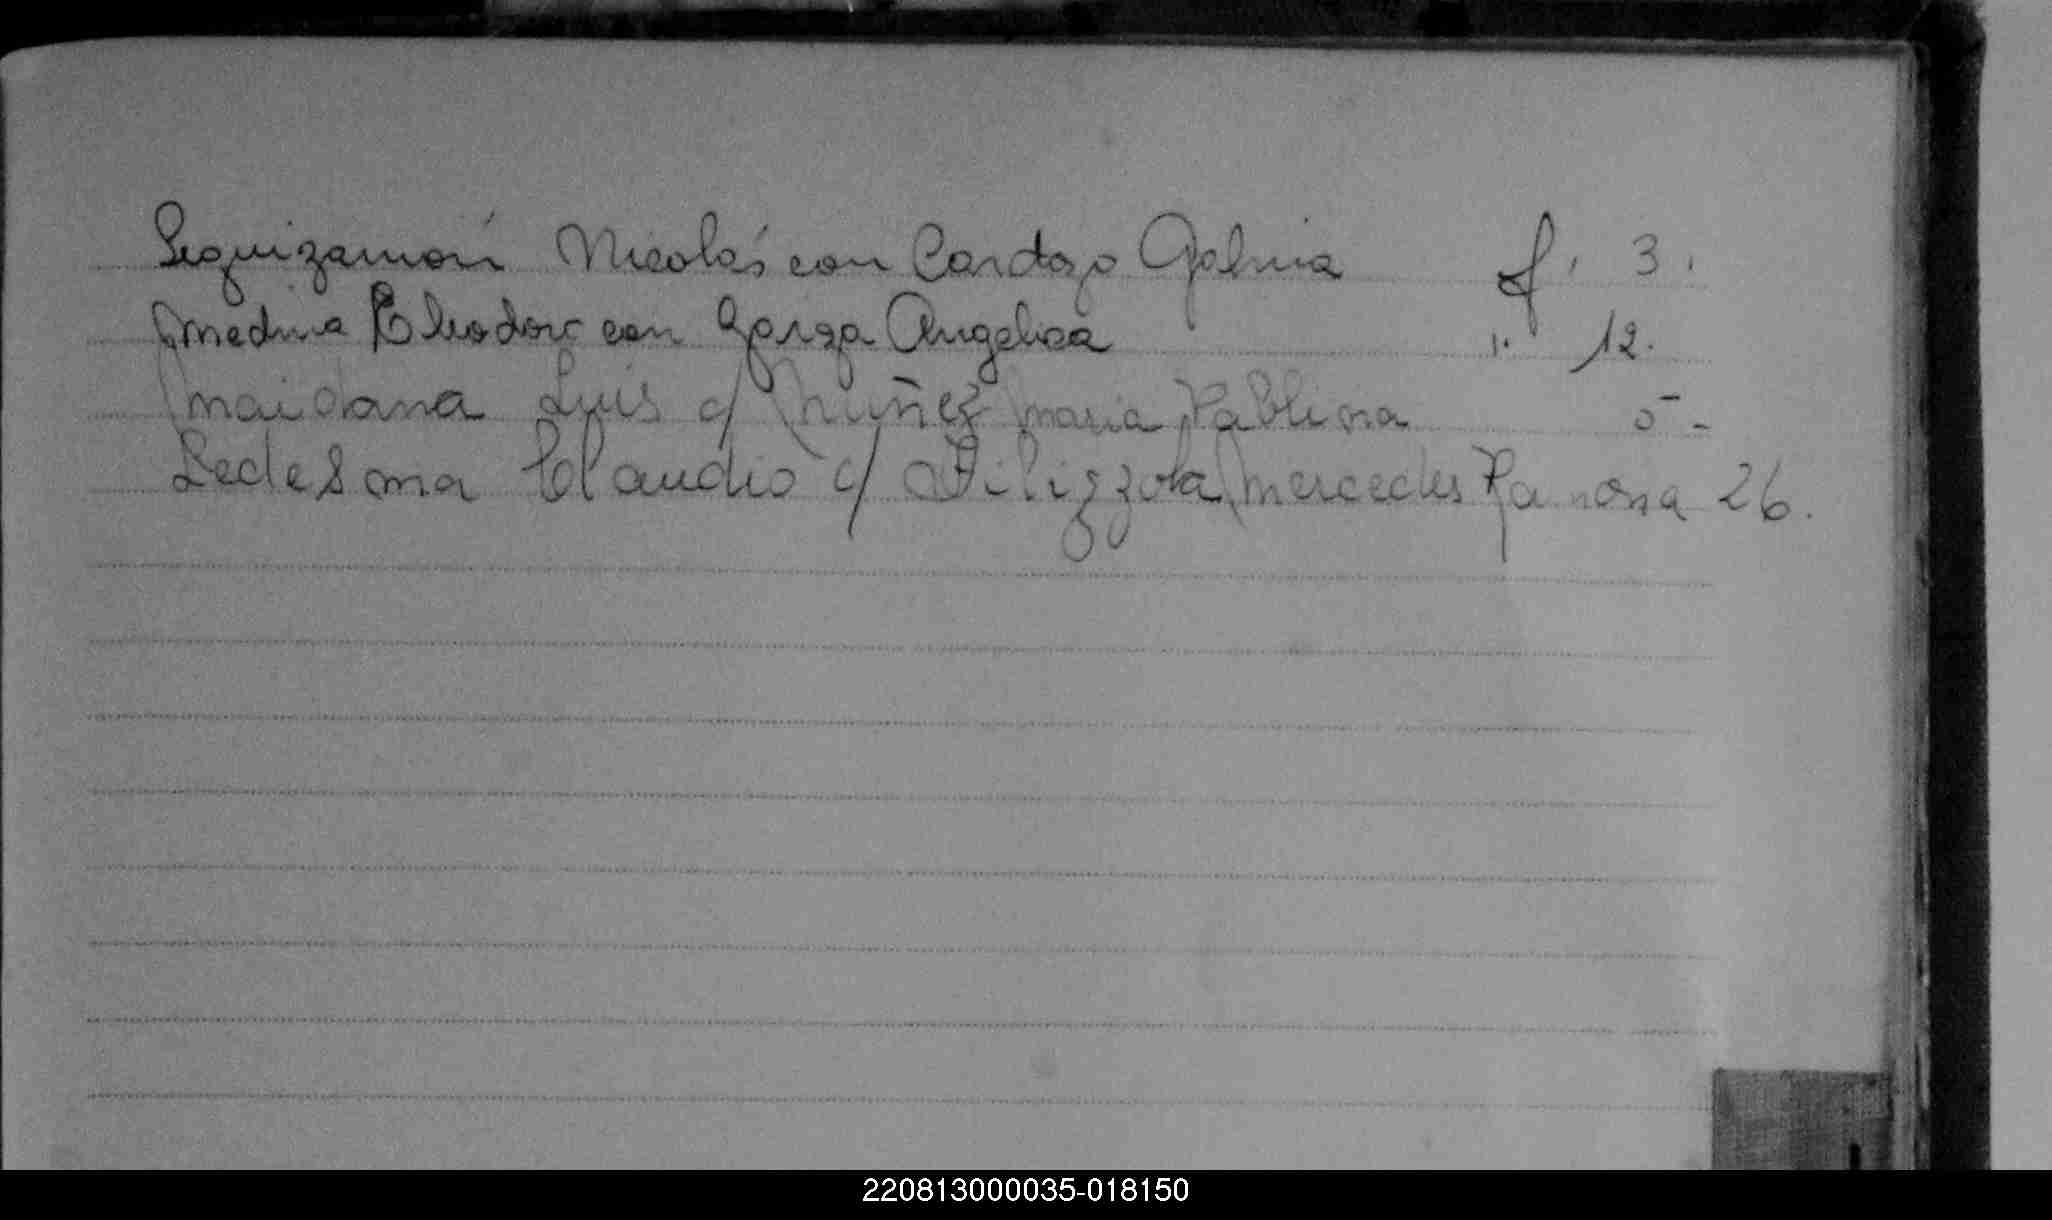 Leguizamón Nicolás con Cardozo Galmia f. 3.
Medina Eleodoro con Garza Angelica " 12.
Maidana Luis c/ Nuñez Maria Pablina 5-
Ledesma Claudio c/ Filizzola Mercedes Ramona 26.
220813000035-018150